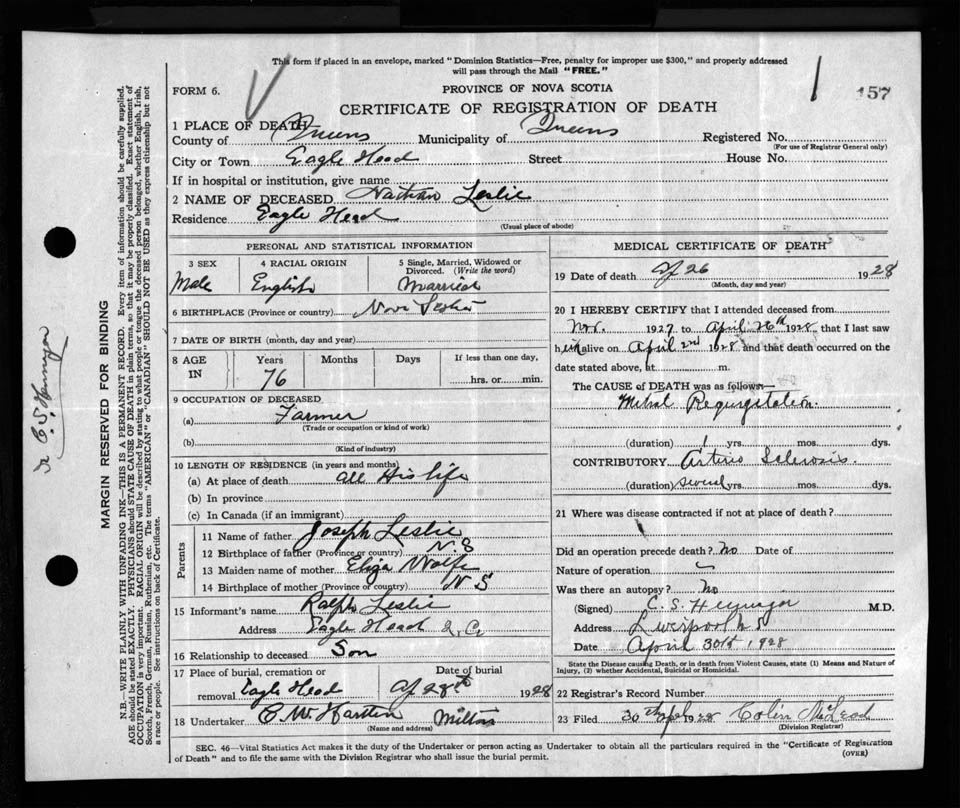 This form if placed in an envelope, marked "Dominion Statistics—Free, penalty for improper use $300," and properly addressed
will pass through the Mail "FREE."
FORM 6.
PROVINCE OF NOVA SCOTIA
157
CERTIFICATE OF REGISTRATION OF DEATH
1 PLACE OF DEATH
County of Queens Municipality of Queens Registered No.
(For use of Registrar General only)
City or Town Eagle Head Street House No.
If in hospital or institution, give name
2 NAME OF DECEASED Nathan Leslie
Residence Eagle Head
(Usual place of abode)
PERSONAL AND STATISTICAL INFORMATION
3 SEX 4 RACIAL ORIGIN 5 Single, Married, Widowed or Divorced. (Write the word)
Male English Married
6 BIRTHPLACE (Province or country) Nova Scotia
7 DATE OF BIRTH (month, day and year)
8 AGE IN Years Months Days If less than one day,
76 hrs. or min.
9 OCCUPATION OF DECEASED
(a) Farmer
(Trade or occupation or kind of work)
(b)
(Kind of industry)
10 LENGTH OF RESIDENCE (in years and months)
(a) At place of death all His life
(b) In province
(c) In Canada (if an immigrant)
Parents
11 Name of father Joseph Leslie
12 Birthplace of father (Province or country) N.S
13 Maiden name of mother Eliza Wolfe
14 Birthplace of mother (Province or country) N S
15 Informant's name Ralph Leslie
Address Eagle Head Q. Co
16 Relationship to deceased Son
17 Place of burial, cremation or Date of burial
removal Eagle Head Ap 28th 1928
18 Undertaker Milton
(Name and address)
MEDICAL CERTIFICATE OF DEATH
19 Date of death Ap 26 1928
(Month, day and year)
20 I HEREBY CERTIFY that I attended deceased from
Nov. 1927 to April 26th 1928 that I last saw
him alive on April 2nd 1928 and that death occurred on the
date stated above, at m.
The CAUSE of DEATH was as follows—
Mitral Regurgitation.
(duration) 1 yrs. mos. dys.
CONTRIBUTORY Arterio Sclerosis
(duration) several yrs. mos. dys.
21 Where was disease contracted if not at place of death?
Did an operation precede death? No Date of
Nature of operation
Was there an autopsy? No
(Signed) C. S. M.D.
Address Liverpool N S
Date April 30th 1928
State the Disease causing Death, or in death from Violent Causes, state (1) Means and Nature of
Injury, (2) whether Accidental, Suicidal or Homicidal.
22 Registrar's Record Number
23 Filed 30th Apl 1928 Colin McLeod
(Division Registrar)
SEC. 46—Vital Statistics Act makes it the duty of the Undertaker or person acting as Undertaker to obtain all the particulars required in the "Certificate of Registration
of Death" and to file the same with the Division Registrar who shall issue the burial permit.
(OVER)
MARGIN RESERVED FOR BINDING
N.B.—WRITE PLAINLY WITH UNFADING INK—THIS IS A PERMANENT RECORD. Every item of information should be carefully supplied.
AGE should be stated EXACTLY. PHYSICIANS should STATE CAUSE OF DEATH in plain terms, so that it may be properly classified. Exact statement of
OCCUPATION is very important. RACIAL ORIGIN will be described by stating to what people or tongue the deceased person belonged, whether English, Irish,
Scotch, French, German, Russian, Ruthenian, etc. The terms "AMERICAN" or "CANADIAN" SHOULD NOT BE USED as they express citizenship but not
a race or people. See instructions on back of Certificate.